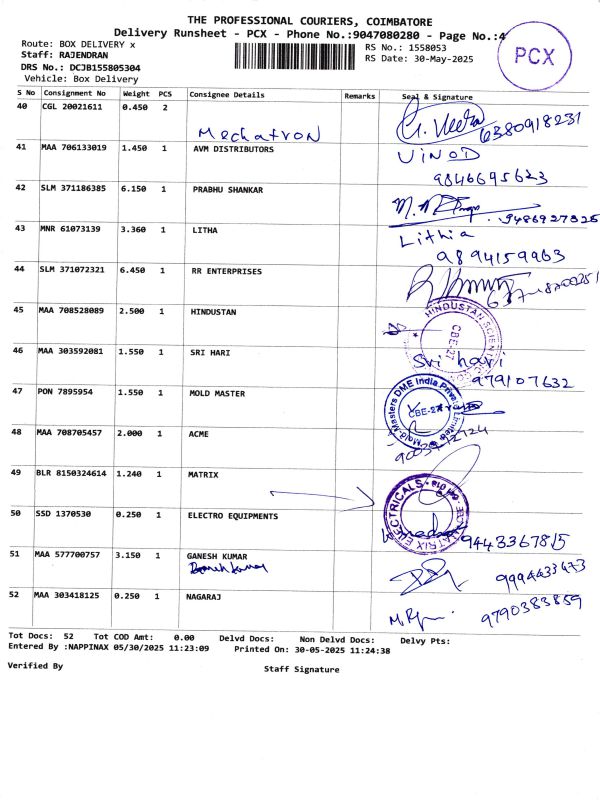 THE PROFESSIONAL COURIERS, COIMBATORE
Delivery Runsheet - PCX - Phone No.:9047080280 - Page No.:4
Route: BOX DELIVERY x
Staff: RAJENDRAN
DRS No.: DCJB155805304
Vehicle: Box Delivery
RS No.: 1558053
RS Date: 30-May-2025
PCX
S No Consignment No Weight PCS Consignee Details Remarks Seal & Signature
40 CGL 20021611 0.450 2 Mechatron G. Veera 6380918231
41 MAA 706133019 1.450 1 AVM DISTRIBUTORS VINOD
9846695623
42 SLM 371186385 6.150 1 PRABHU SHANKAR
9486927825
43 MNR 61073139 3.360 1 LITHA Lithia
9894159963
44 SLM 371072321 6.450 1 RR ENTERPRISES
45 MAA 708528089 2.500 1 HINDUSTAN
HINDUSTAN SCIENTIFIC
CBE-27
46 MAA 303592081 1.550 1 SRI HARI Sri hari
979107632
47 PON 7895954 1.550 1 MOLD MASTER
Mold-Masters DME India Private Limited
CBE-27
48 MAA 708705457 2.000 1 ACME
49 BLR 8150324614 1.240 1 MATRIX
MATRIX ELECTRICALS
50 SSD 1370530 0.250 1 ELECTRO EQUIPMENTS
9443367815
51 MAA 577700757 3.150 1 GANESH KUMAR
9994433473
52 MAA 303418125 0.250 1 NAGARAJ
9790383859
Tot Docs: 52 Tot COD Amt: 0.00 Delvd Docs: Non Delvd Docs: Delvy Pts:
Entered By :NAPPINAX 05/30/2025 11:23:09 Printed On: 30-05-2025 11:24:38
Verified By Staff Signature